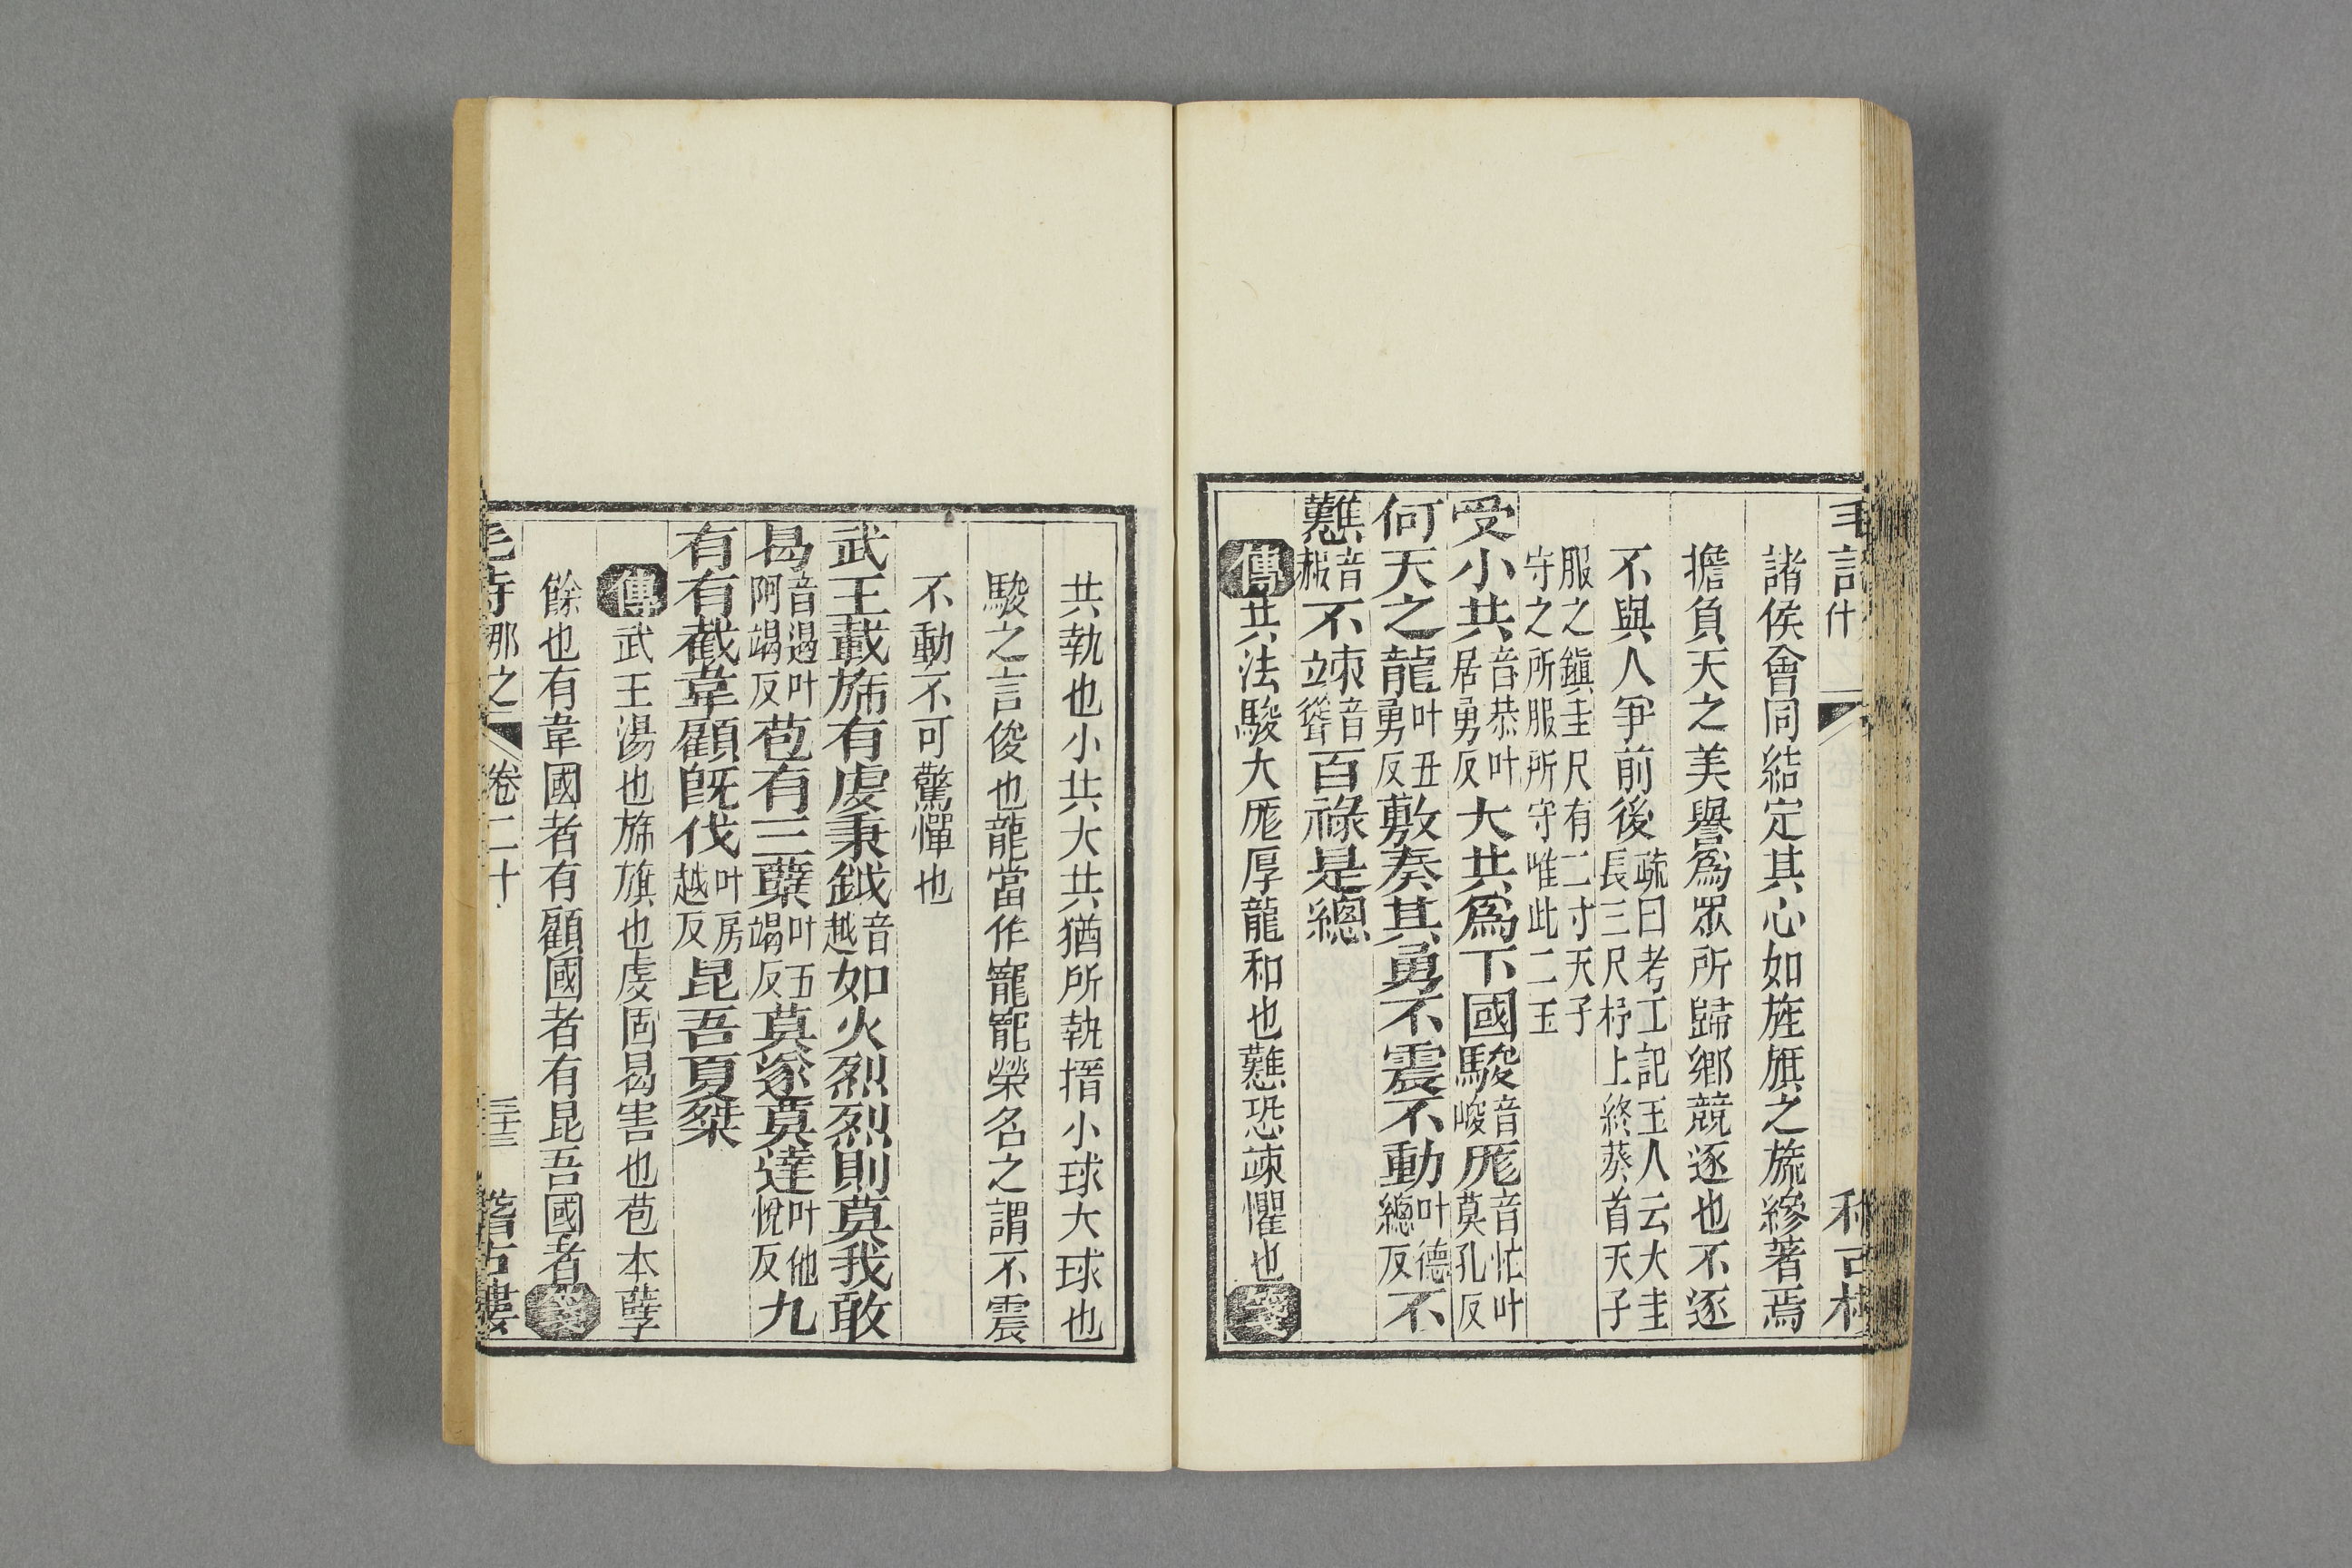 諸侯會同結定其心如旌旗之旒縿著焉
擔負天之美譽爲眾所歸鄉競逐也不逐
不與人爭前後疏曰考工記玉人云大圭長三尺杼上終葵首天子
服之鎭圭尺有二寸天子守之所服所守唯此二玉
受小共音恭叶居勇反大共爲下國駿音峻厖音忙叶莫孔反
何天之龍叶丑勇反敷奏其勇不震不動叶德總反不
戁音赧不竦音聳百祿是總
傳共法駿大厖厚龍和也戁恐竦懼也箋
共執也小共大共猶所執搢小球大球也
駿之言俊也龍當作寵寵榮名之謂不震
不動不可驚憚也
武王載斾有虔秉鉞音越如火烈烈則莫我敢
曷音遏叶阿竭反苞有三蘖叶五竭反莫遂莫達叶他悅反九
有有截韋顧旣伐叶房越反昆吾夏桀
傳武王湯也斾旗也虔固曷害也苞本孽
餘也有韋國者有顧國者有昆吾國者箋
毛詩 那之 卷二十 三十三